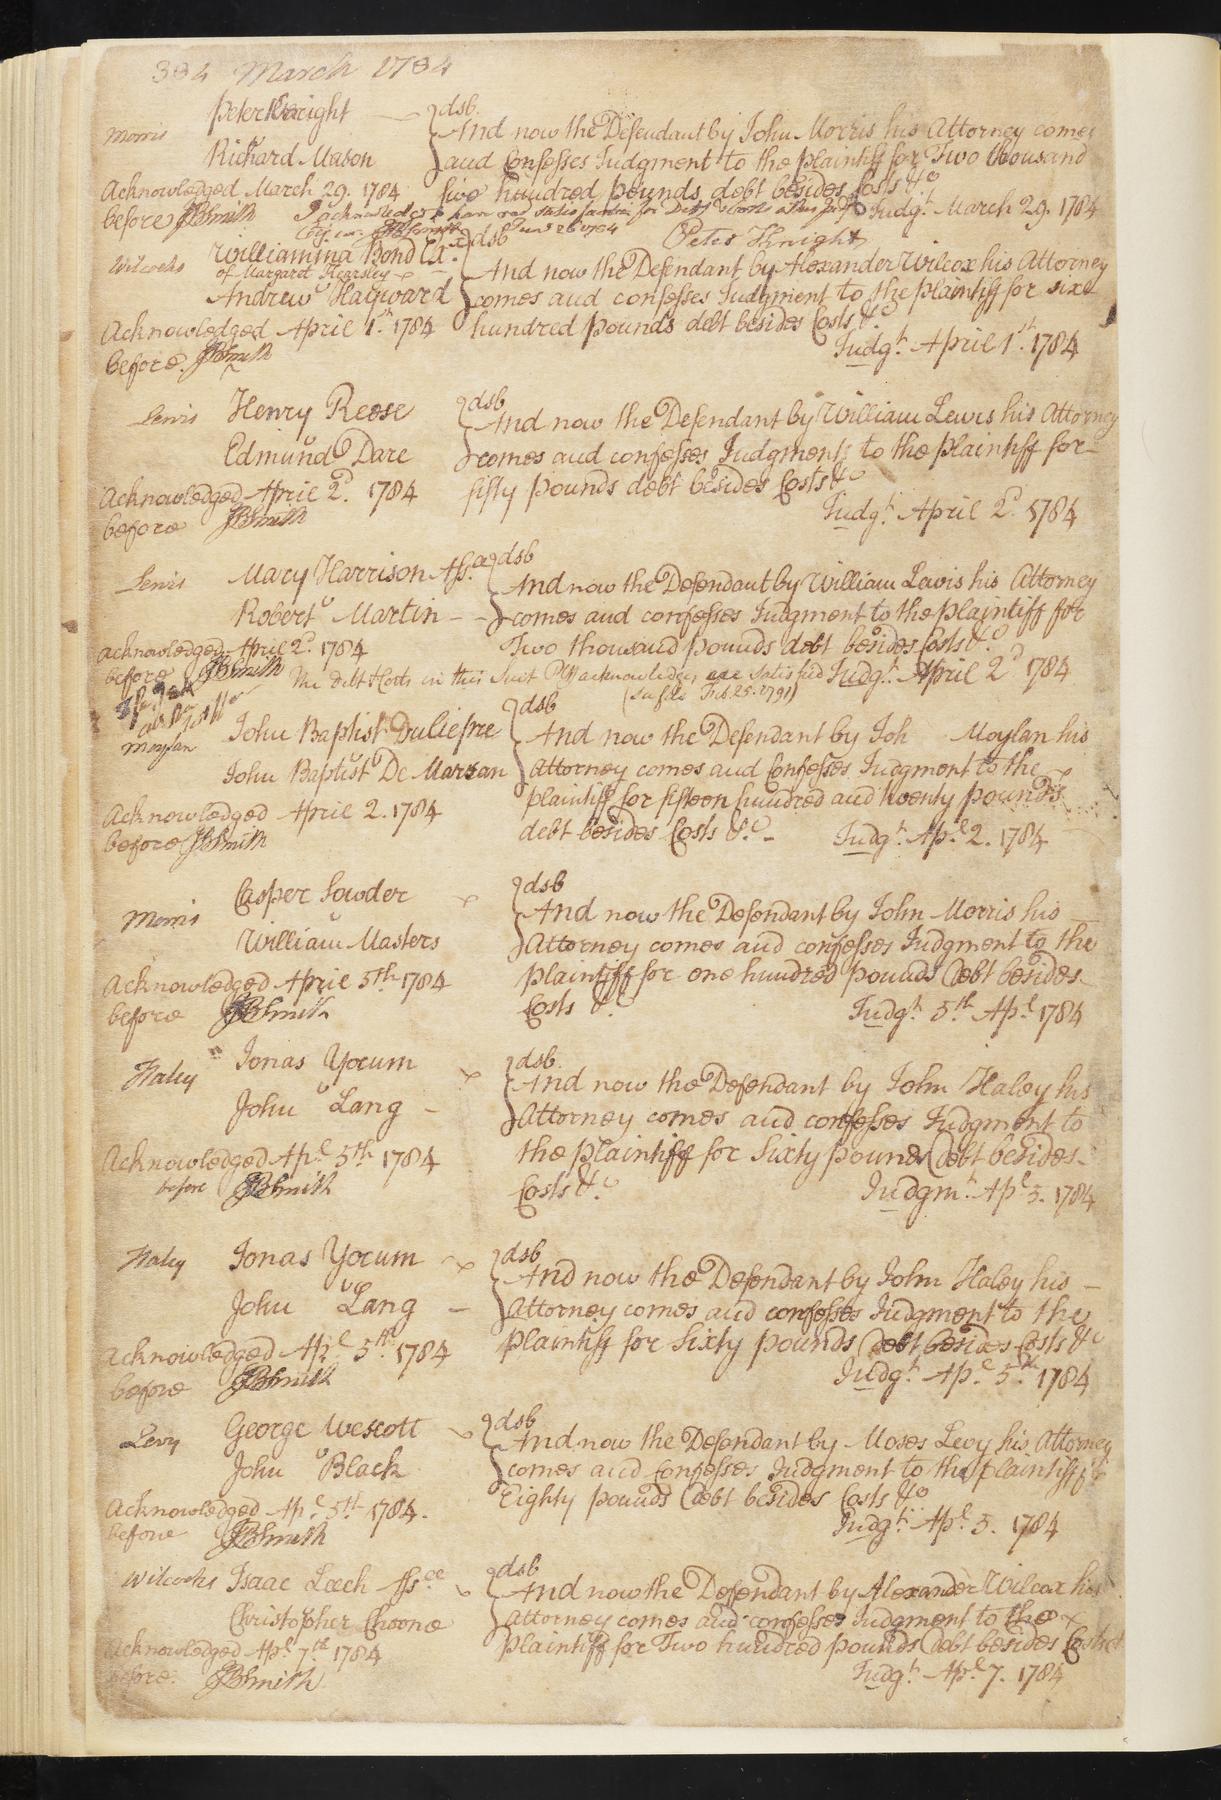 384 March 1784
Peter Knight dsb
Morris And now the Defendant by John Morris his Attorney comes
v
Richard Mason and Confesses Judgment to the plaintiff for Two thousand
Acknowledged March 29. 1784 five hundred pounds debt besides Costs &c
before JBSmith Judgt. March 29. 1784
I acknowledge to have recd satisfaction for Debt & Costs
Peter Knight
Williamina Bond Ex.x dsb
Wilcocks of Margaret Kearsley And now the Defendant by Alexander Wilcox his Attorney
v
Andrew Hayward comes and confesses Judgment to the plaintiff for six
Acknowledged April 1st. 1784 hundred pounds debt besides Costs &c.
before JBSmith Judgt. April 1st. 1784
Lewis Henry Reese dsb
And now the Defendant by William Lewis his Attorney
v
Edmund Dare comes and confesses Judgment to the plaintiff for
Acknowledged April 2d. 1784 fifty pounds debt besides Costs &c
before JBSmith Judgt. April 2d. 1784
Lewis Mary Harrison Ass.ee dsb
And now the Defendant by William Lewis his Attorney
v
Robert Martin comes and confesses Judgment to the plaintiff for
acknowledged April 2d. 1784 Two thousand pounds debt besides Costs &c
before JBSmith Judgt. April 2d 1784
The Debt & Costs in this Suit Plff acknowledges are satisfied
Feb. 25. 1791
John Baptist dsb
Moylan And now the Defendant by Joh Moylan his
v
John Baptist De Marsan Attorney comes and Confesses Judgment to the
plaintiff for fifteen hundred and twenty pounds
Acknowledged April 2. 1784 debt besides Costs &c.
before JBSmith Judgt. Apl. 2. 1784
Casper Sowder dsb
Morris And now the Defendant by John Morris his
v
William Masters Attorney comes and confesses Judgment to the
Acknowledged April 5th 1784 plaintiff for one hundred pounds Debt besides
before JBSmith Costs &c.
Judgt. 5th Apl. 1784
Haley Jonas Yocum dsb
And now the Defendant by John Haley his
v
John Lang Attorney comes and confesses Judgment to
Acknowledged Apl. 5th 1784 the plaintiff for Sixty pounds Debt besides
before JBSmith Costs &c.
Judgmt. Apl 5. 1784
Haley Jonas Yocum dsb
And now the Defendant by John Haley his
v
John Lang Attorney comes and confesses Judgment to the
Acknowledged Apl. 5th. 1784 plaintiff for Sixty pounds Debt besides Costs &c
before JBSmith Judgt. Apl. 5th 1784
Levy George Wescott dsb
And now the Defendant by Moses Levy his Attorney
v
John Black comes and Confesses Judgment to the plaintiff
Acknowledged Apl. 5th 1784. Eighty pounds Debt besides Costs &c
before JBSmith Judgt. Apl 5. 1784
Wilcocks Isaac Leech Ass.ee dsb
And now the Defendant by Alexander Wilcox his
v
Christopher Choone attorney comes and confesses Judgment to the
Acknowledged Apl 7th 1784 plaintiff for Two hundred pounds Debt besides Costs
before. JBSmith Judgt. Apl. 7. 1784